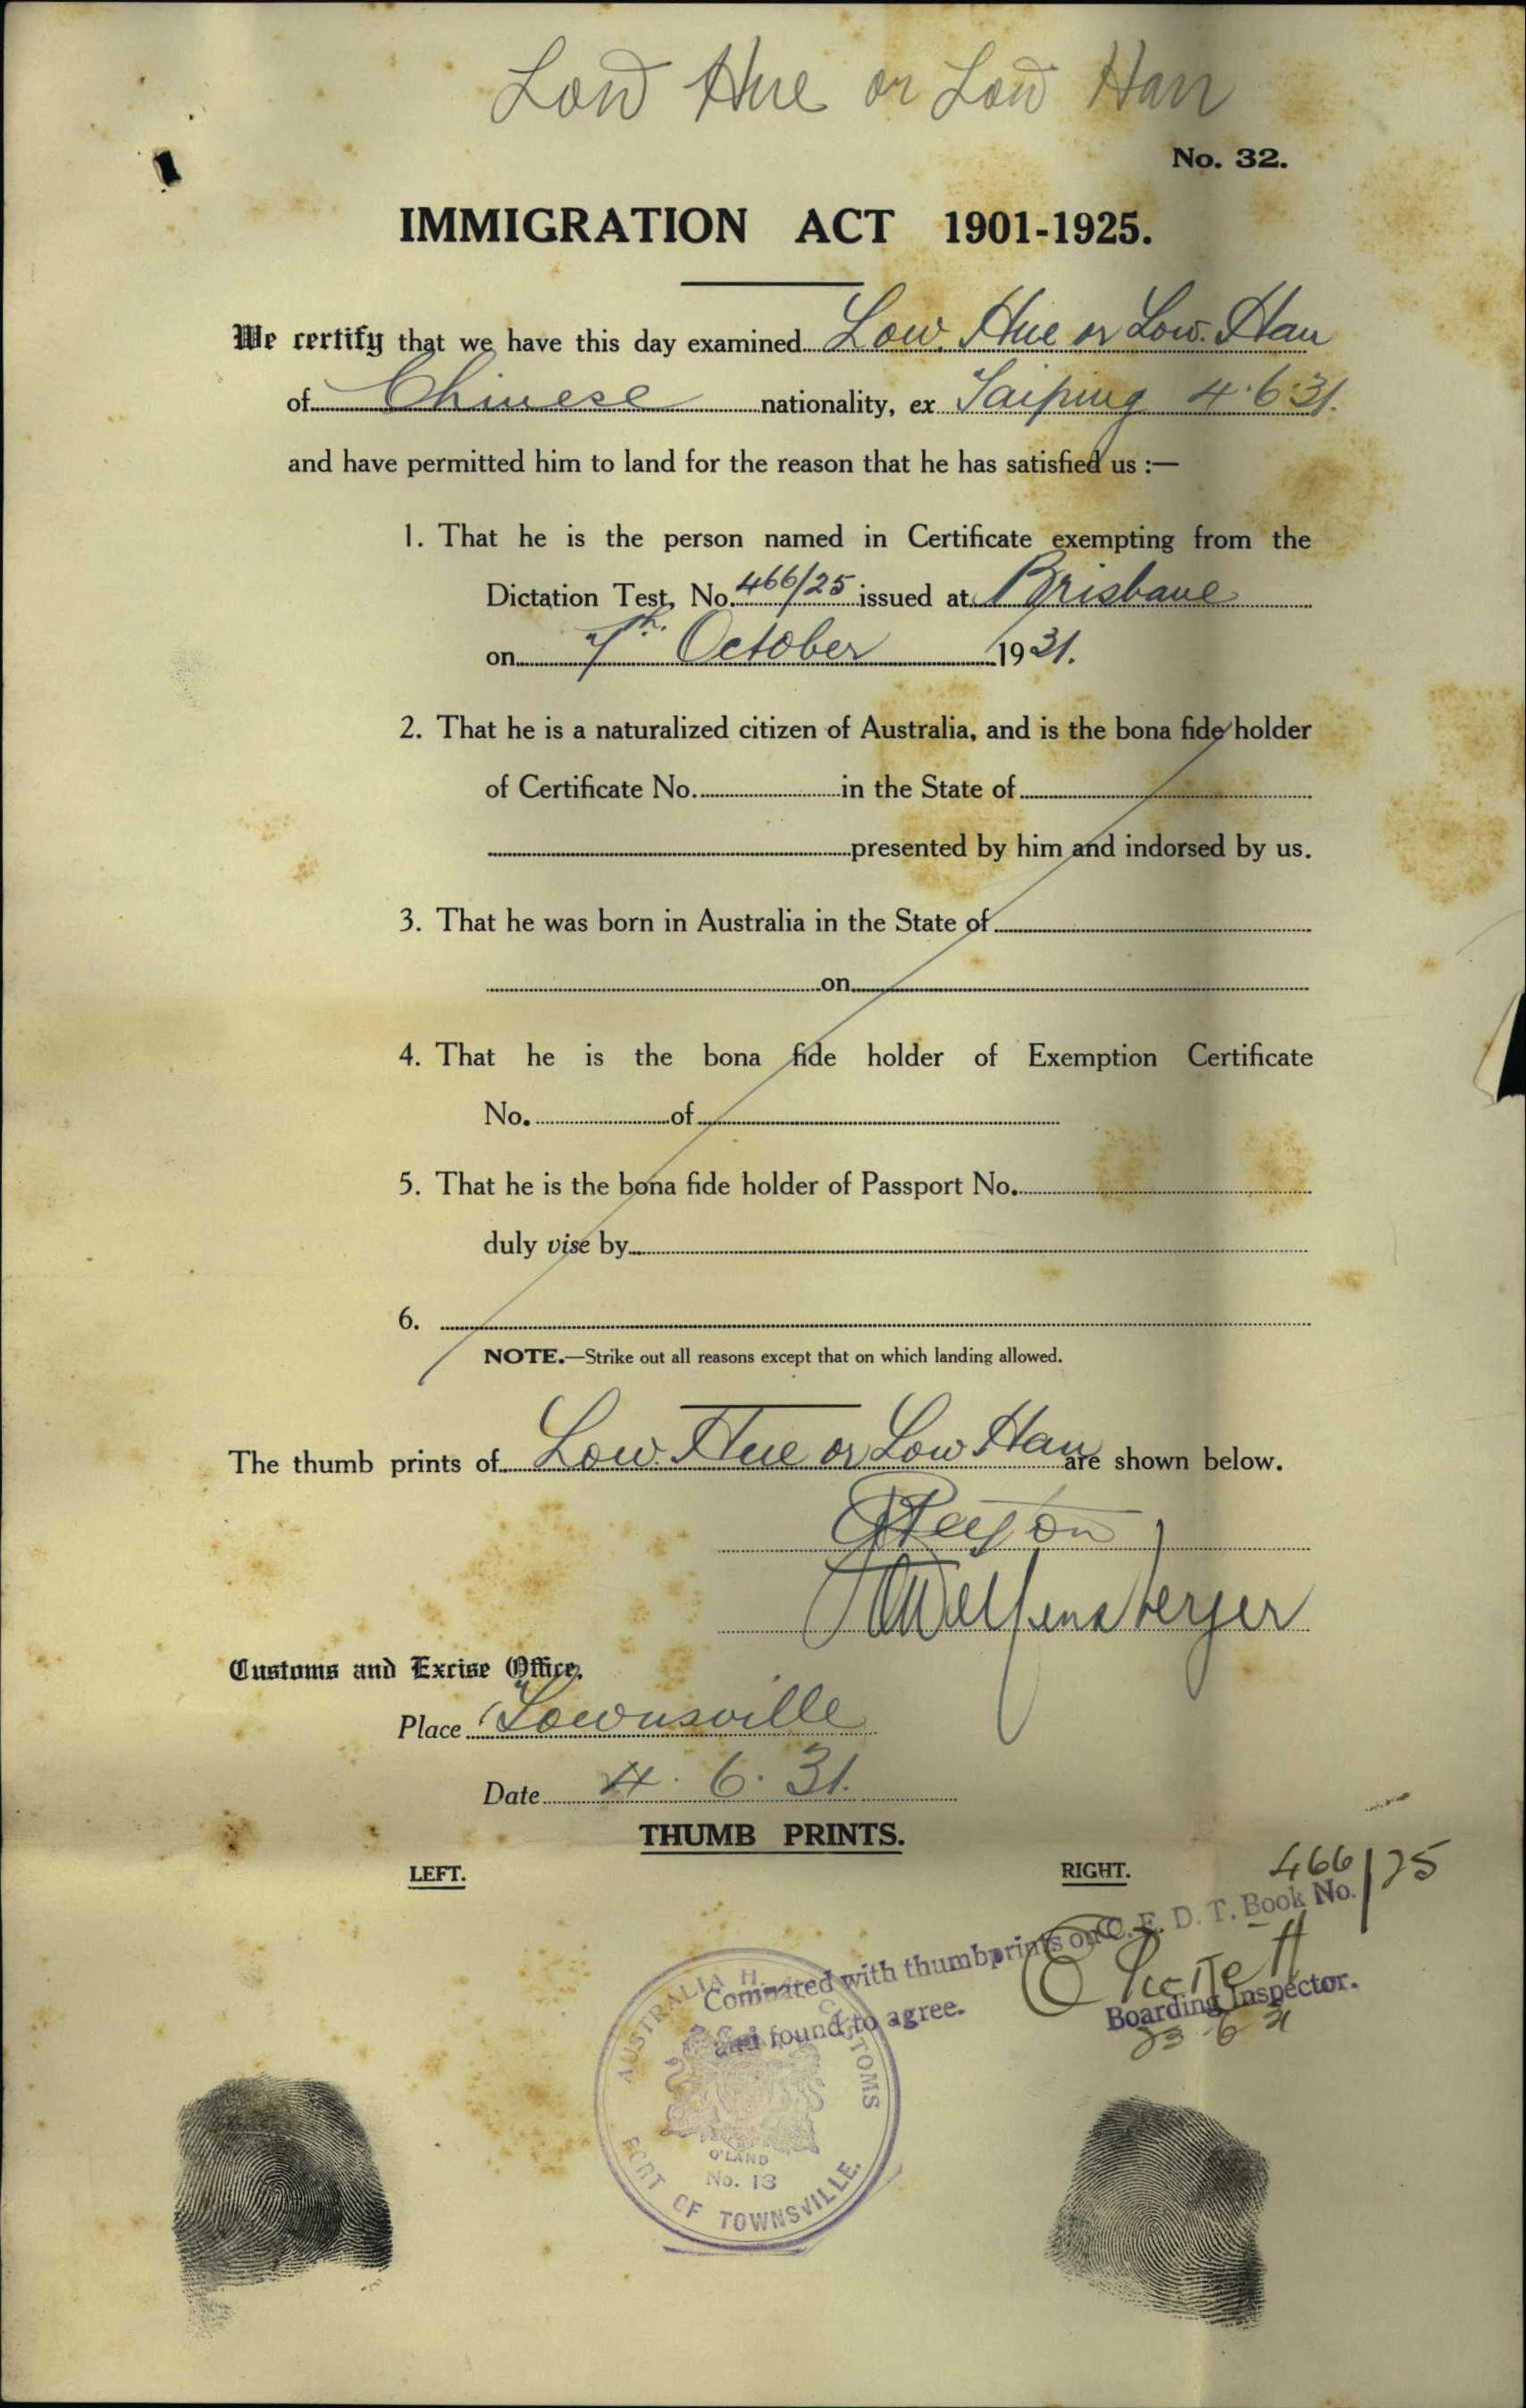 Low Hue or Low Han
No. 32.
IMMIGRATION ACT 1901-1925.
We certify that we have this day examined Low Hue or Low Han
of Chinese nationality, ex Taiping 4.6.31.
and have permitted him to land for the reason that he has satisfied us :—
1. That he is the person named in Certificate exempting from the
Dictation Test, No. 466/25 issued at Brisbane
on 7th October 1931.
2. That he is a naturalized citizen of Australia, and is the bona fide holder
of Certificate No. in the State of
presented by him and indorsed by us.
3. That he was born in Australia in the State of
on
4. That he is the bona fide holder of Exemption Certificate
No. of
5. That he is the bona fide holder of Passport No.
duly vise by
6.
NOTE.—Strike out all reasons except that on which landing allowed.
The thumb prints of Low Hue or Low Han are shown below.
Customs and Excise Office,
Place Townsville
Date 4. 6. 31.
THUMB PRINTS.
LEFT.
RIGHT.
466/25
Compared with thumbprints on C. E. D. T. Book No.
and found to agree.
Boarding Inspector.
23 6 31
AUSTRALIA H. CUSTOMS
Q'LAND
No. 13
PORT OF TOWNSVILLE.